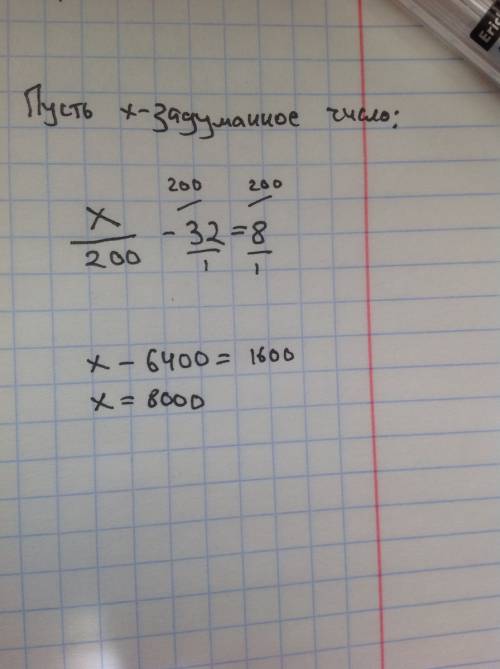 Пусть x-задуманное число:
200 200
x/200 - 32/1 = 8/1
x - 6400 = 1600
x = 8000
Eric